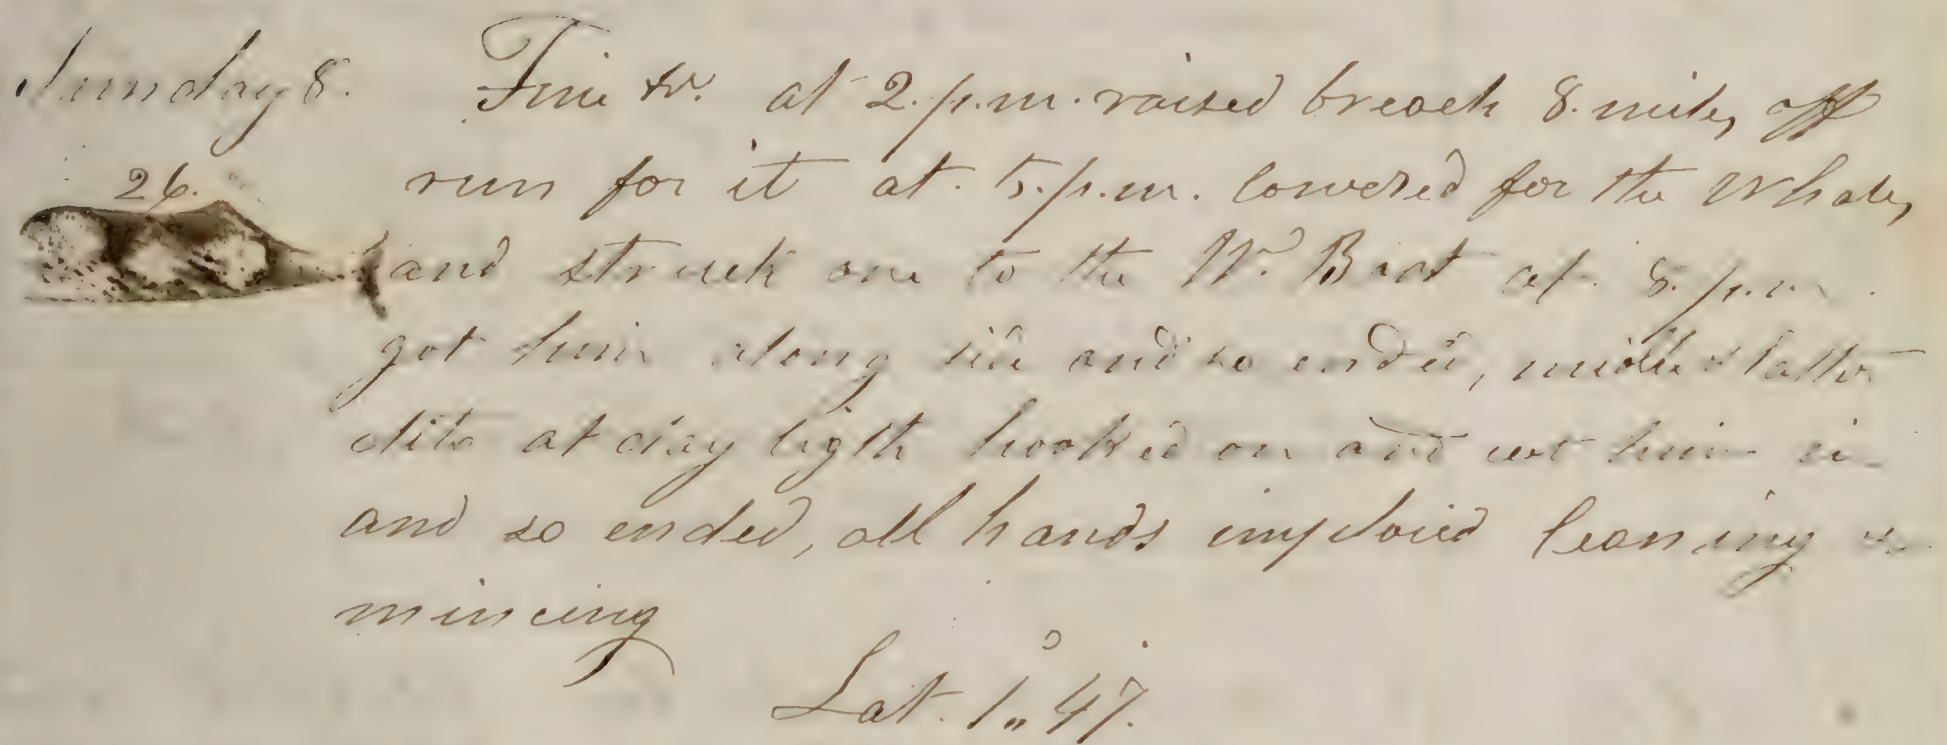 Sunday 8. Fine Wr. at 2. p.m. raised breach 8. miles off
26. run for it at 5. p.m. lowered for the Whales
and struck one to the Wd. Boat at 8. p.m.
got him along side and so ended, middle & latter
ditto at day ligth hooked on and cut him in
and so ended, all hands imploied leaning &
mincing
Lat. 1°,, 47.